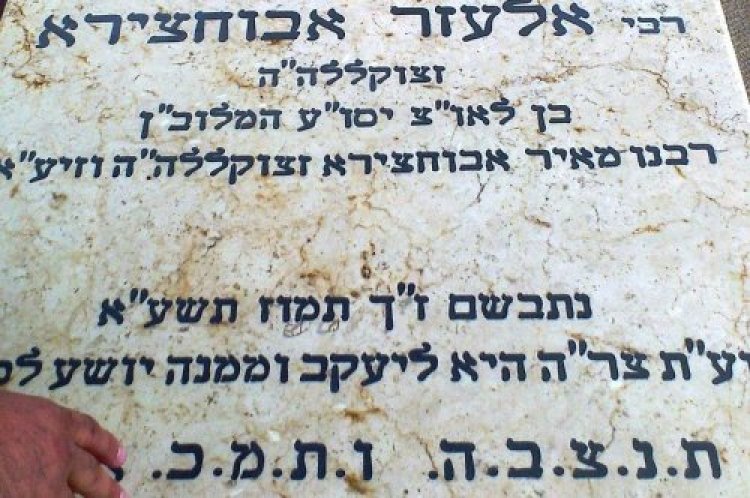 רבי אלעזר אבוחצירא
זצוקללה"ה
בן לאו"צ יסו"ע המלוב"ן
רבנו מאיר אבוחצירא זצוקללה"ה וזיע"א
נתבשם ז"ך תמוז תשע"א
וע"ת צר"ה היא ליעקב וממנה יושע
ת.נ.צ.ב.ה. ו.ת.מ.כ.